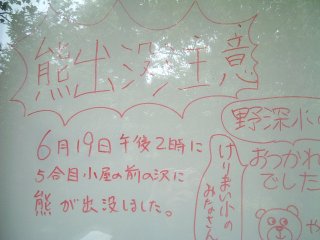 熊出没注意
6月19日午後2時に
5合目小屋の前の沢に
熊が出没しました。
野深小の
けりまい小の
みなさん
おつかれ
でした